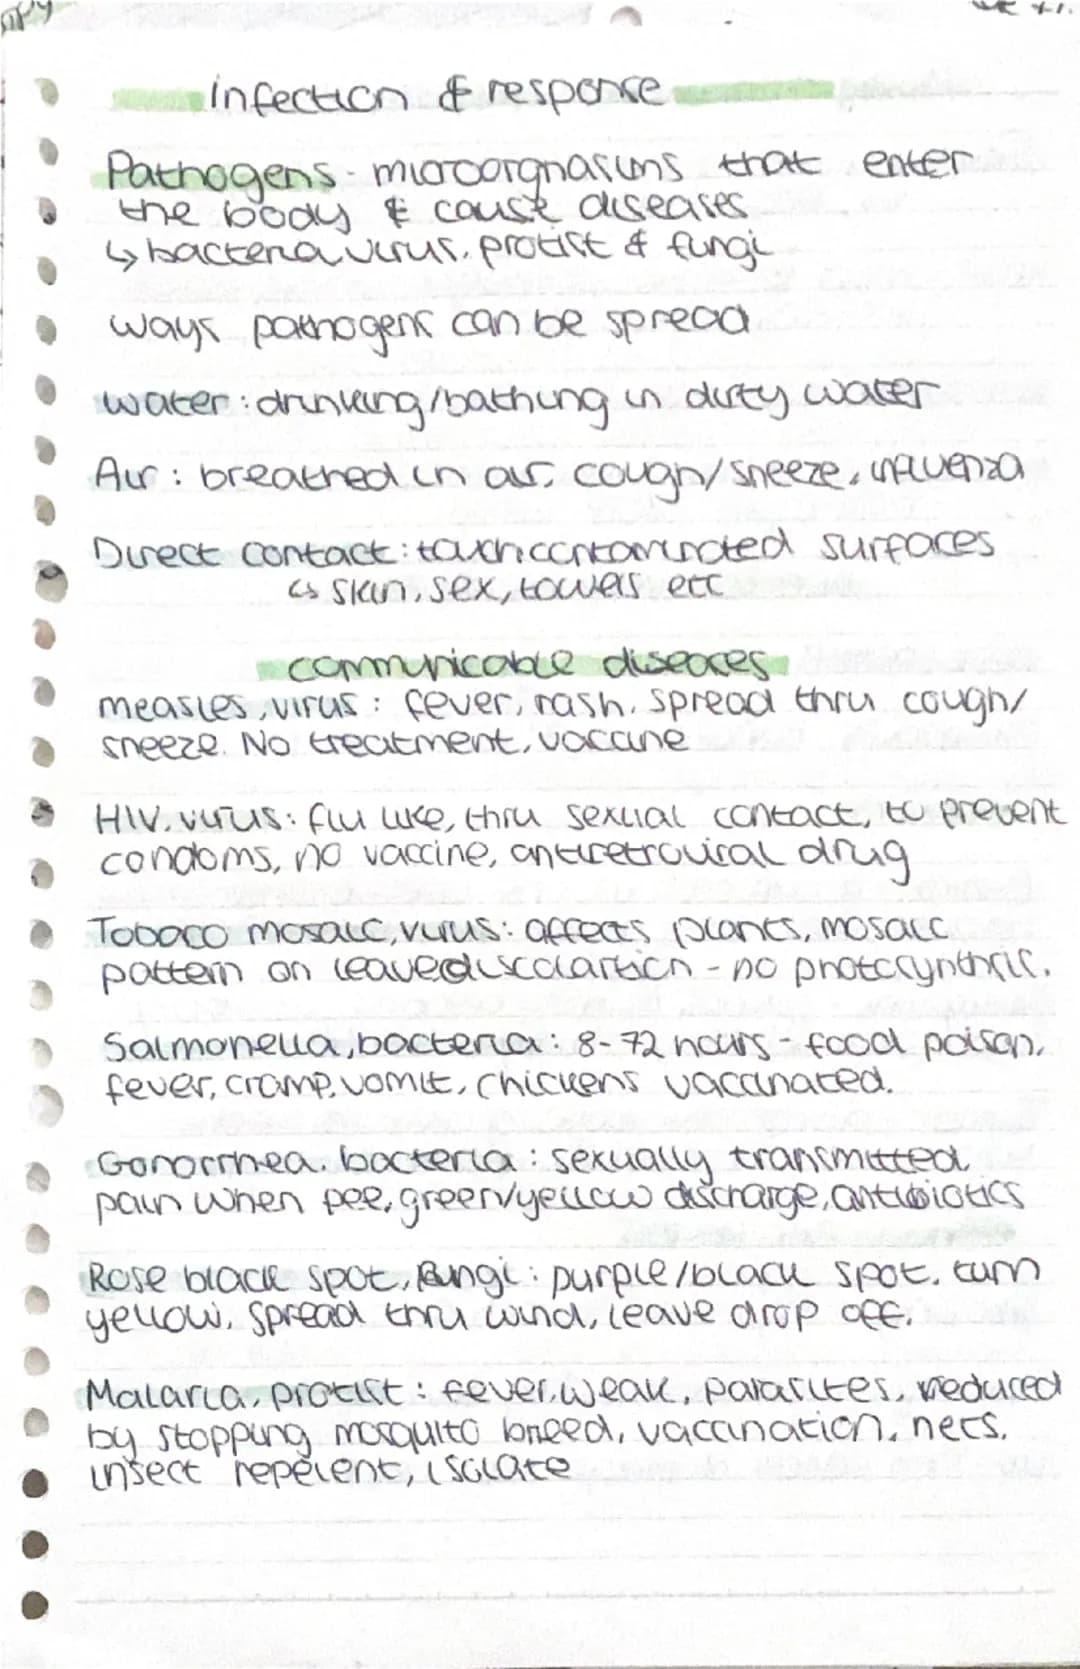 infection & response
Pathogens - microorgnasims that enter
the body & cause diseases
↳ bacteria, virus, protist & fungi
ways pathogens can be spread
water: drinking/bathing in dirty water
Air: breathed in air, cough/sneeze, influenza
Direct contact: touch contaminated surfaces
↳ skin, sex, towels etc
communicable diseases
measles, virus: fever, rash. spread thru cough/
sneeze. No treatment, vaccine
HIV. virus: flu like, thru sexual contact, to prevent
condoms, no vaccine, antiretroviral drug
Tobaco mosaic, virus: affects plants, mosaic
pattern on leave discolartion - no photosynthsis.
Salmonella, bacteria: 8-72 hours - food poison,
fever, cramp, vomit, chickens vaccinated.
Gonorrhea. bacteria: sexually transmitted,
pain when pee, green/yellow discharge, antibiotics
Rose black spot, fungi: purple/black spot. turn
yellow, spread thru wind, leave drop off.
Malaria. protist: fever, weak, parasites, reduced
by stopping mosquito breed, vaccination, nets,
insect repelent, isolate